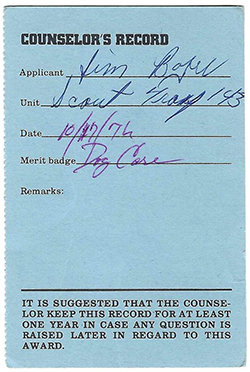 COUNSELOR'S RECORD
Applicant Jim
Unit Scout Troop 143
Date 10/17/76
Merit badge Dog Care
Remarks:
IT IS SUGGESTED THAT THE COUNSE-
LOR KEEP THIS RECORD FOR AT LEAST
ONE YEAR IN CASE ANY QUESTION IS
RAISED LATER IN REGARD TO THIS
AWARD.